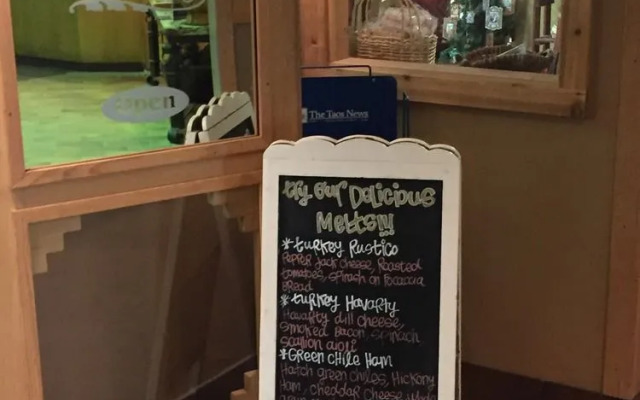 Taos
open
The Taos News
try our Delicious
Melts!!!
*turkey Rustico
Pepper Jack cheese, Roasted
tomatoes, spinach on focaccia
Bread
*turkey Havarty
Havarty dill cheese,
smoked bacon, spinach
scallion aioli
*GReen CHile Ham
Hatch green chiles, Hickory
Ham, cheddar cheese